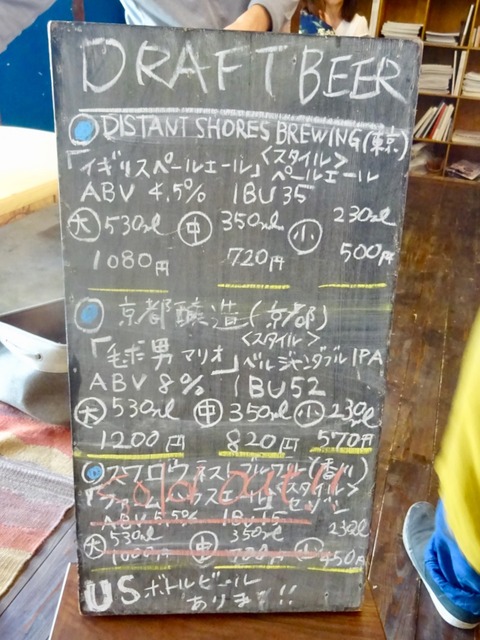 DRAFT BEER
DISTANT SHORES BREWING (東京)
「イギリスペールエール」 <スタイル> ペールエール
ABV 4.5% IBU 35
大 530ml 中 350ml 小 230ml
1080円 720円 500円
京都醸造 (京都)
「毛ボ男 マリオ」 <スタイル> ベルジャンダブルIPA
ABV 8% IBU 52
大 530ml 中 350ml 小 230ml
1200円 820円 570円
(香川)
ファームハウスエール」 スタイル> セゾン
Sold out
ABV 5.5% IBU 15
大 530ml 中 350ml 小 230ml
450円
US ボトルビール
あります!!